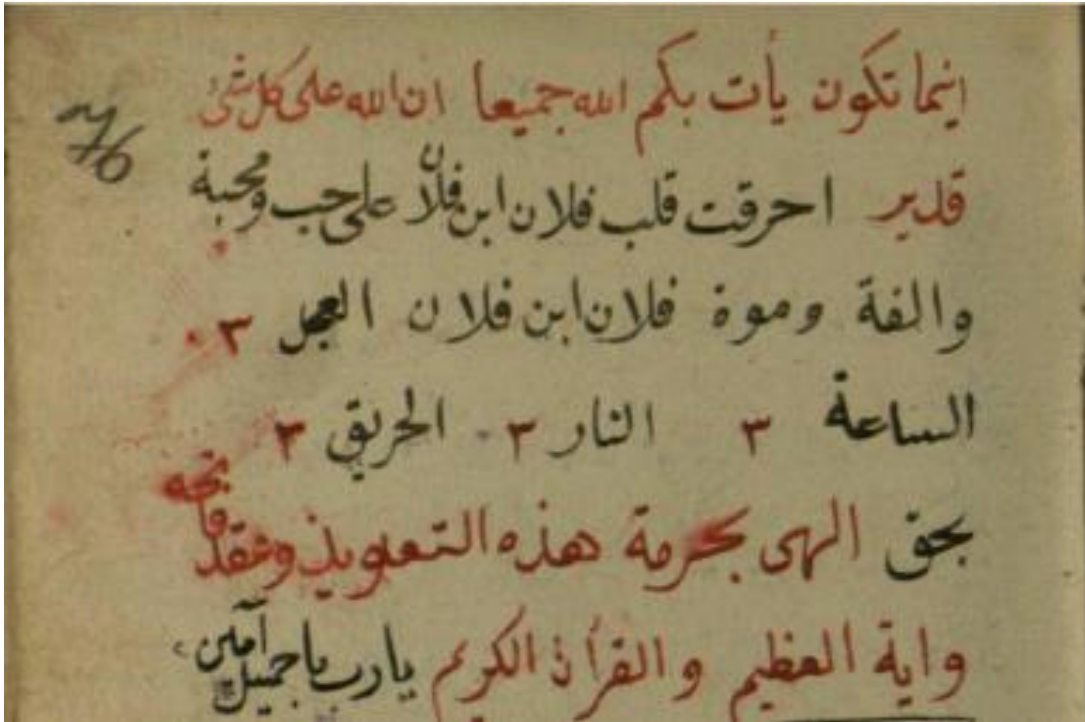 اينما تكون يأت بكم الله جميعا ان الله على كل شئ
قدير احرقت قلب فلان ابن فلان على حب ومحبة
والفة وموة فلان ابن فلان العجل ٣
الساعة ٣ النار ٣ الحريق ٣
بحق الهى بحرمة هذه التعويذ وعقد
واية العظيم والقرآن الكريم يارب ياجميل آمين
76